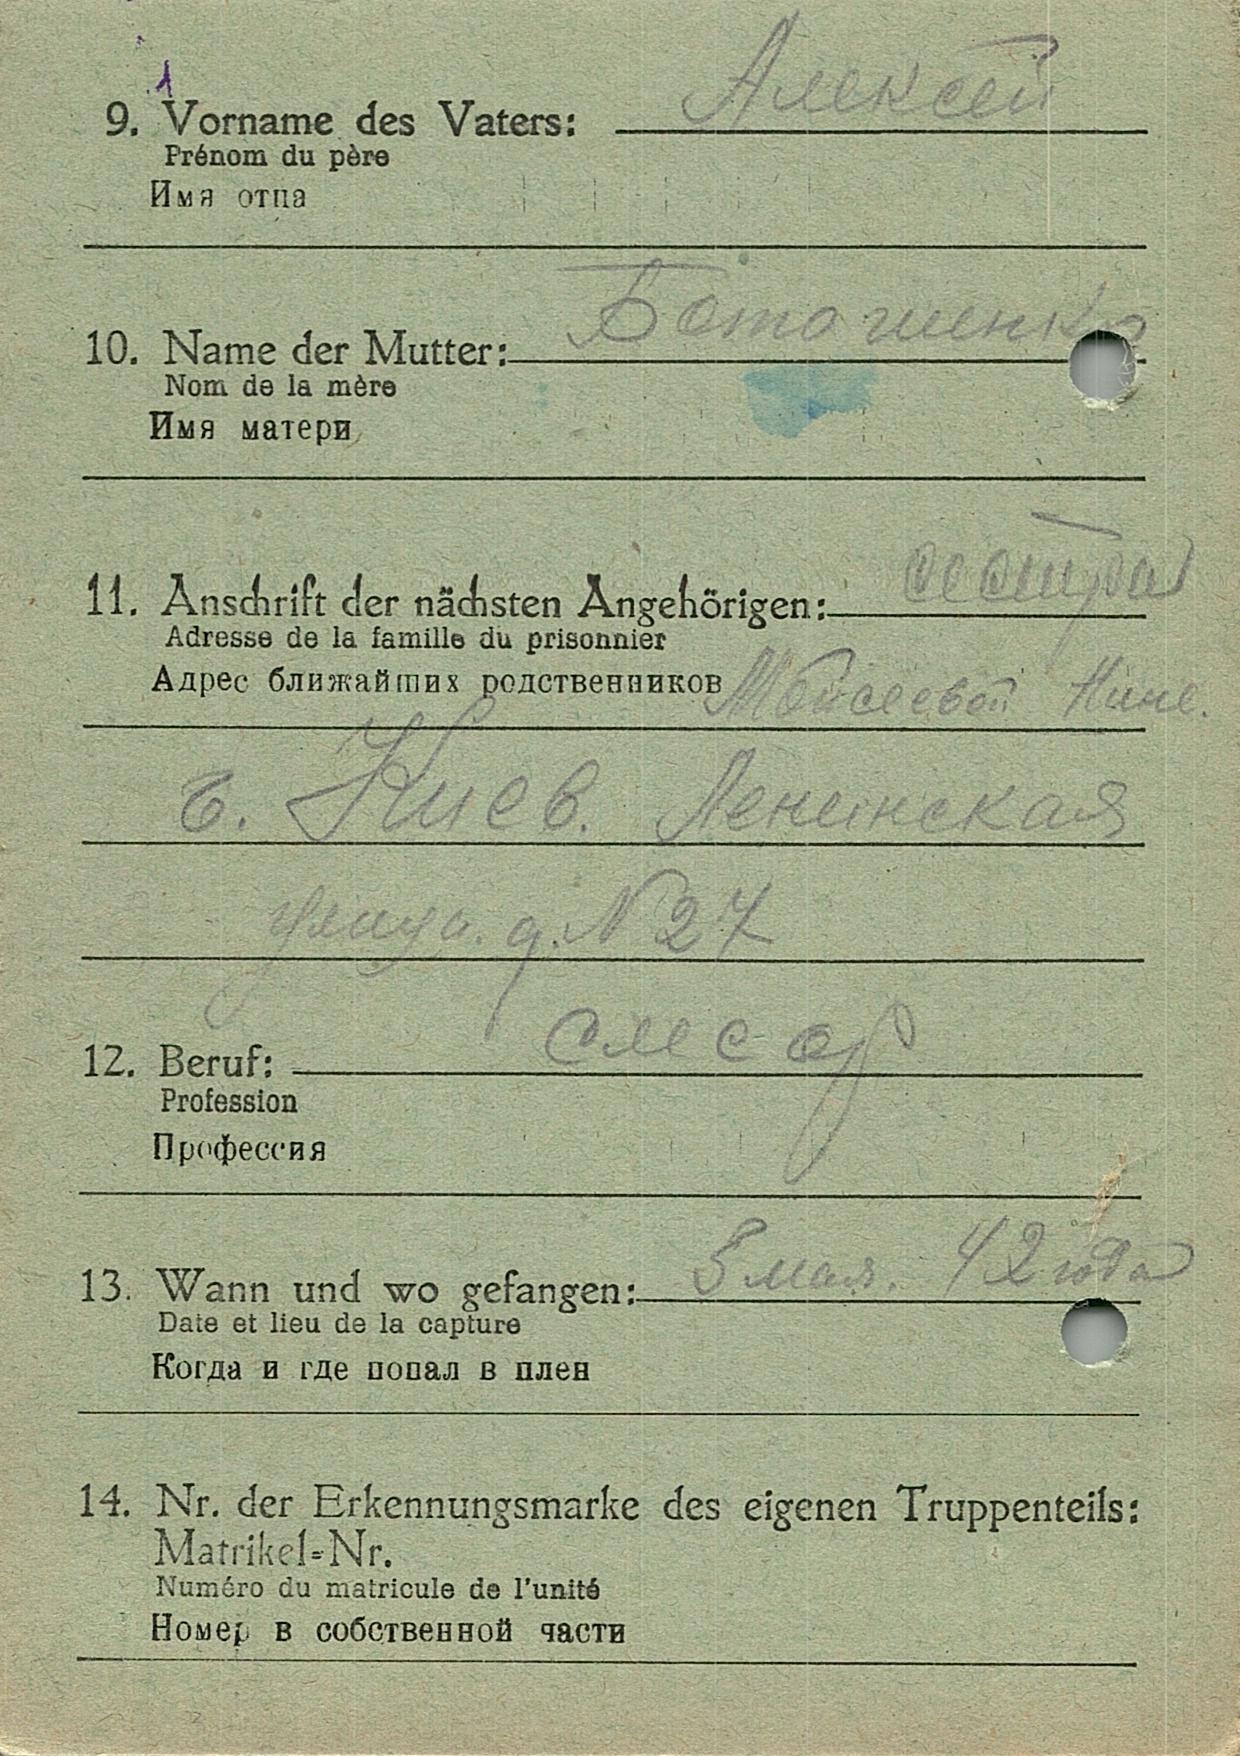 Алексей
9. Vorname des Vaters:
Prénom du père
Имя отца
10. Name der Mutter:
Nom de la mère
Имя матери
сестра
11. Anschrift der nächsten Angehörigen:
Adresse de la famille du prisonnier
Адрес ближайших родственников Мойсеевой Нине.
г. Киев. Ленинская
улица. д. N 27
слесар
12. Beruf:
Profession
Профессия
13. Wann und wo gefangen: мая. 42 года
Date et lieu de la capture
Когда и где попал в плен
14. Nr. der Erkennungsmarke des eigenen Truppenteils:
Matrikel-Nr.
Numéro du matricule de l'unité
Номер в собственной части